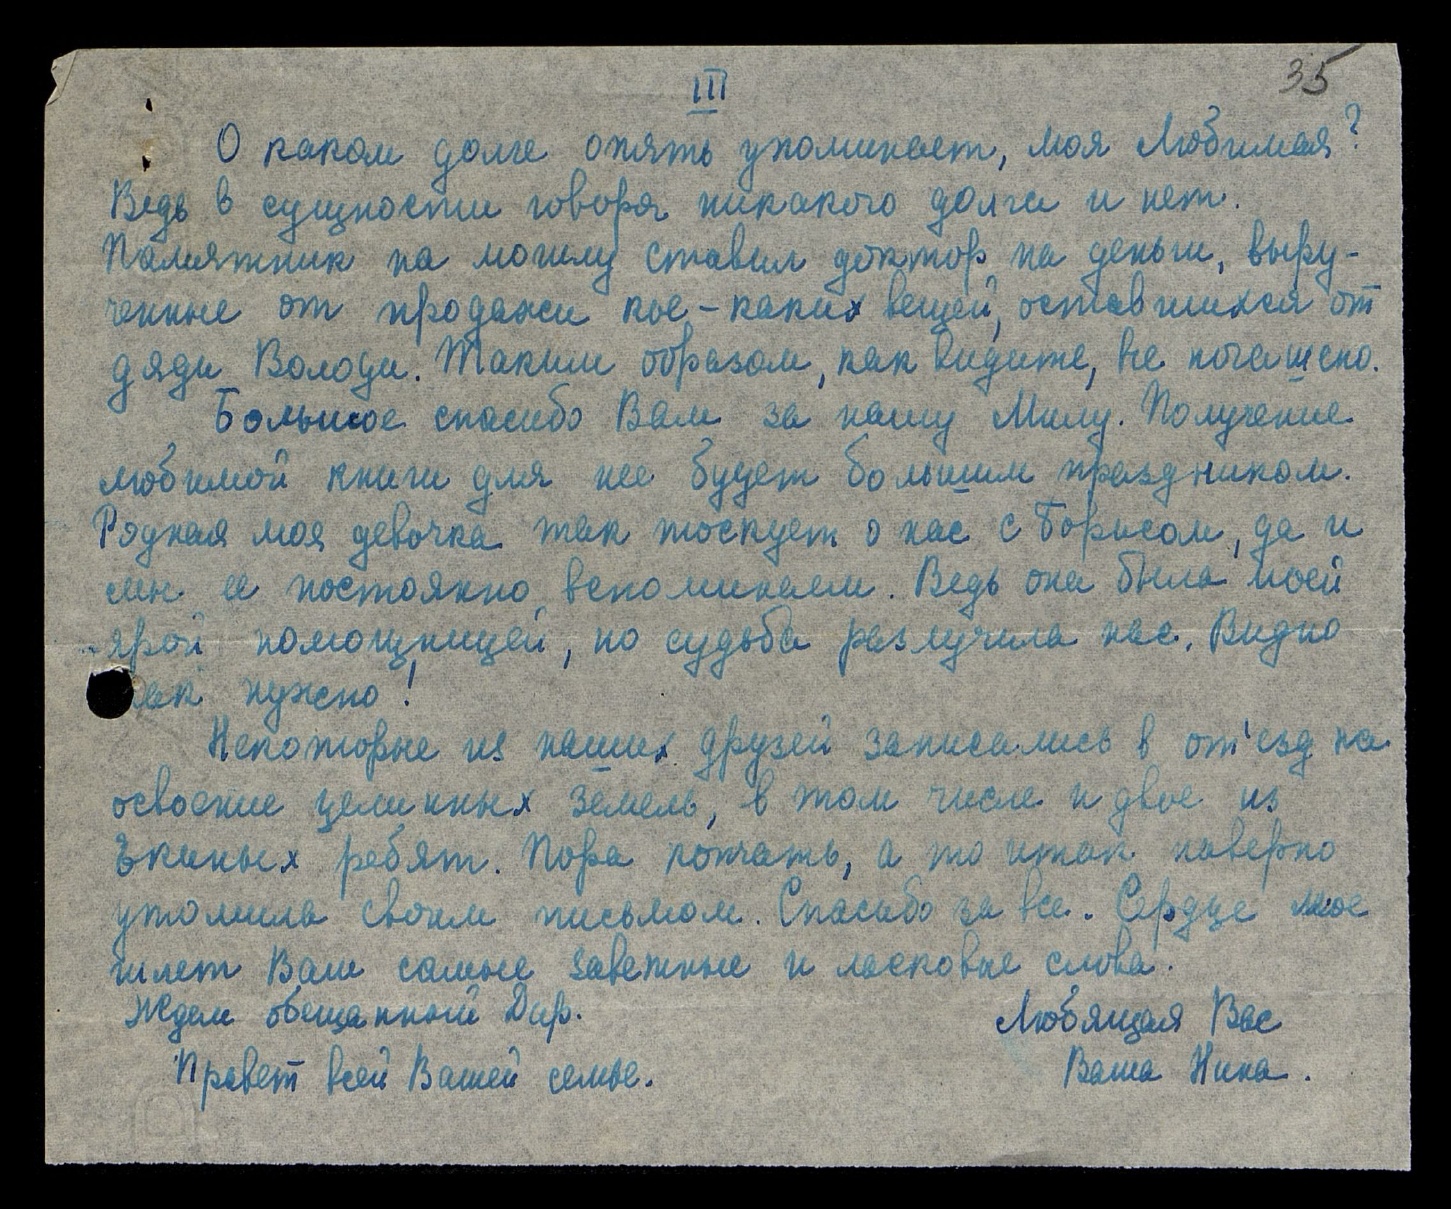 III
35
О каком долге опять упоминает, моя Любимая?
Ведь в сущности говоря никакого долга и нет.
Памятник на могилу ставил доктор на деньги, выру-
ченные от продажи кое-каких вещей, оставшихся от
дяди Володи. Таким образом, как видите, все погашено.
Большое спасибо Вам за нашу Милу. Получение
любимой книги для нее будет большим праздником.
Родная моя девочка так тоскует о нас с Борисом, да и
мы ее постоянно вспоминаем. Ведь она была моей
ярой помощницей, но судьба разлучила нас. Видно
так нужно!
Некоторые из наших друзей записались в от'езд на
освоение целинных земель, в том числе и двое из
Экиных ребят. Пора кончать, а то итак наверно
утомила своим письмом. Спасибо за все. Сердце мое
шлет Вам самые заветные и ласковые слова.
Ждем обещанный Дар.
Любящая Вас
Привет всей Вашей семье.
Ваша Нина.